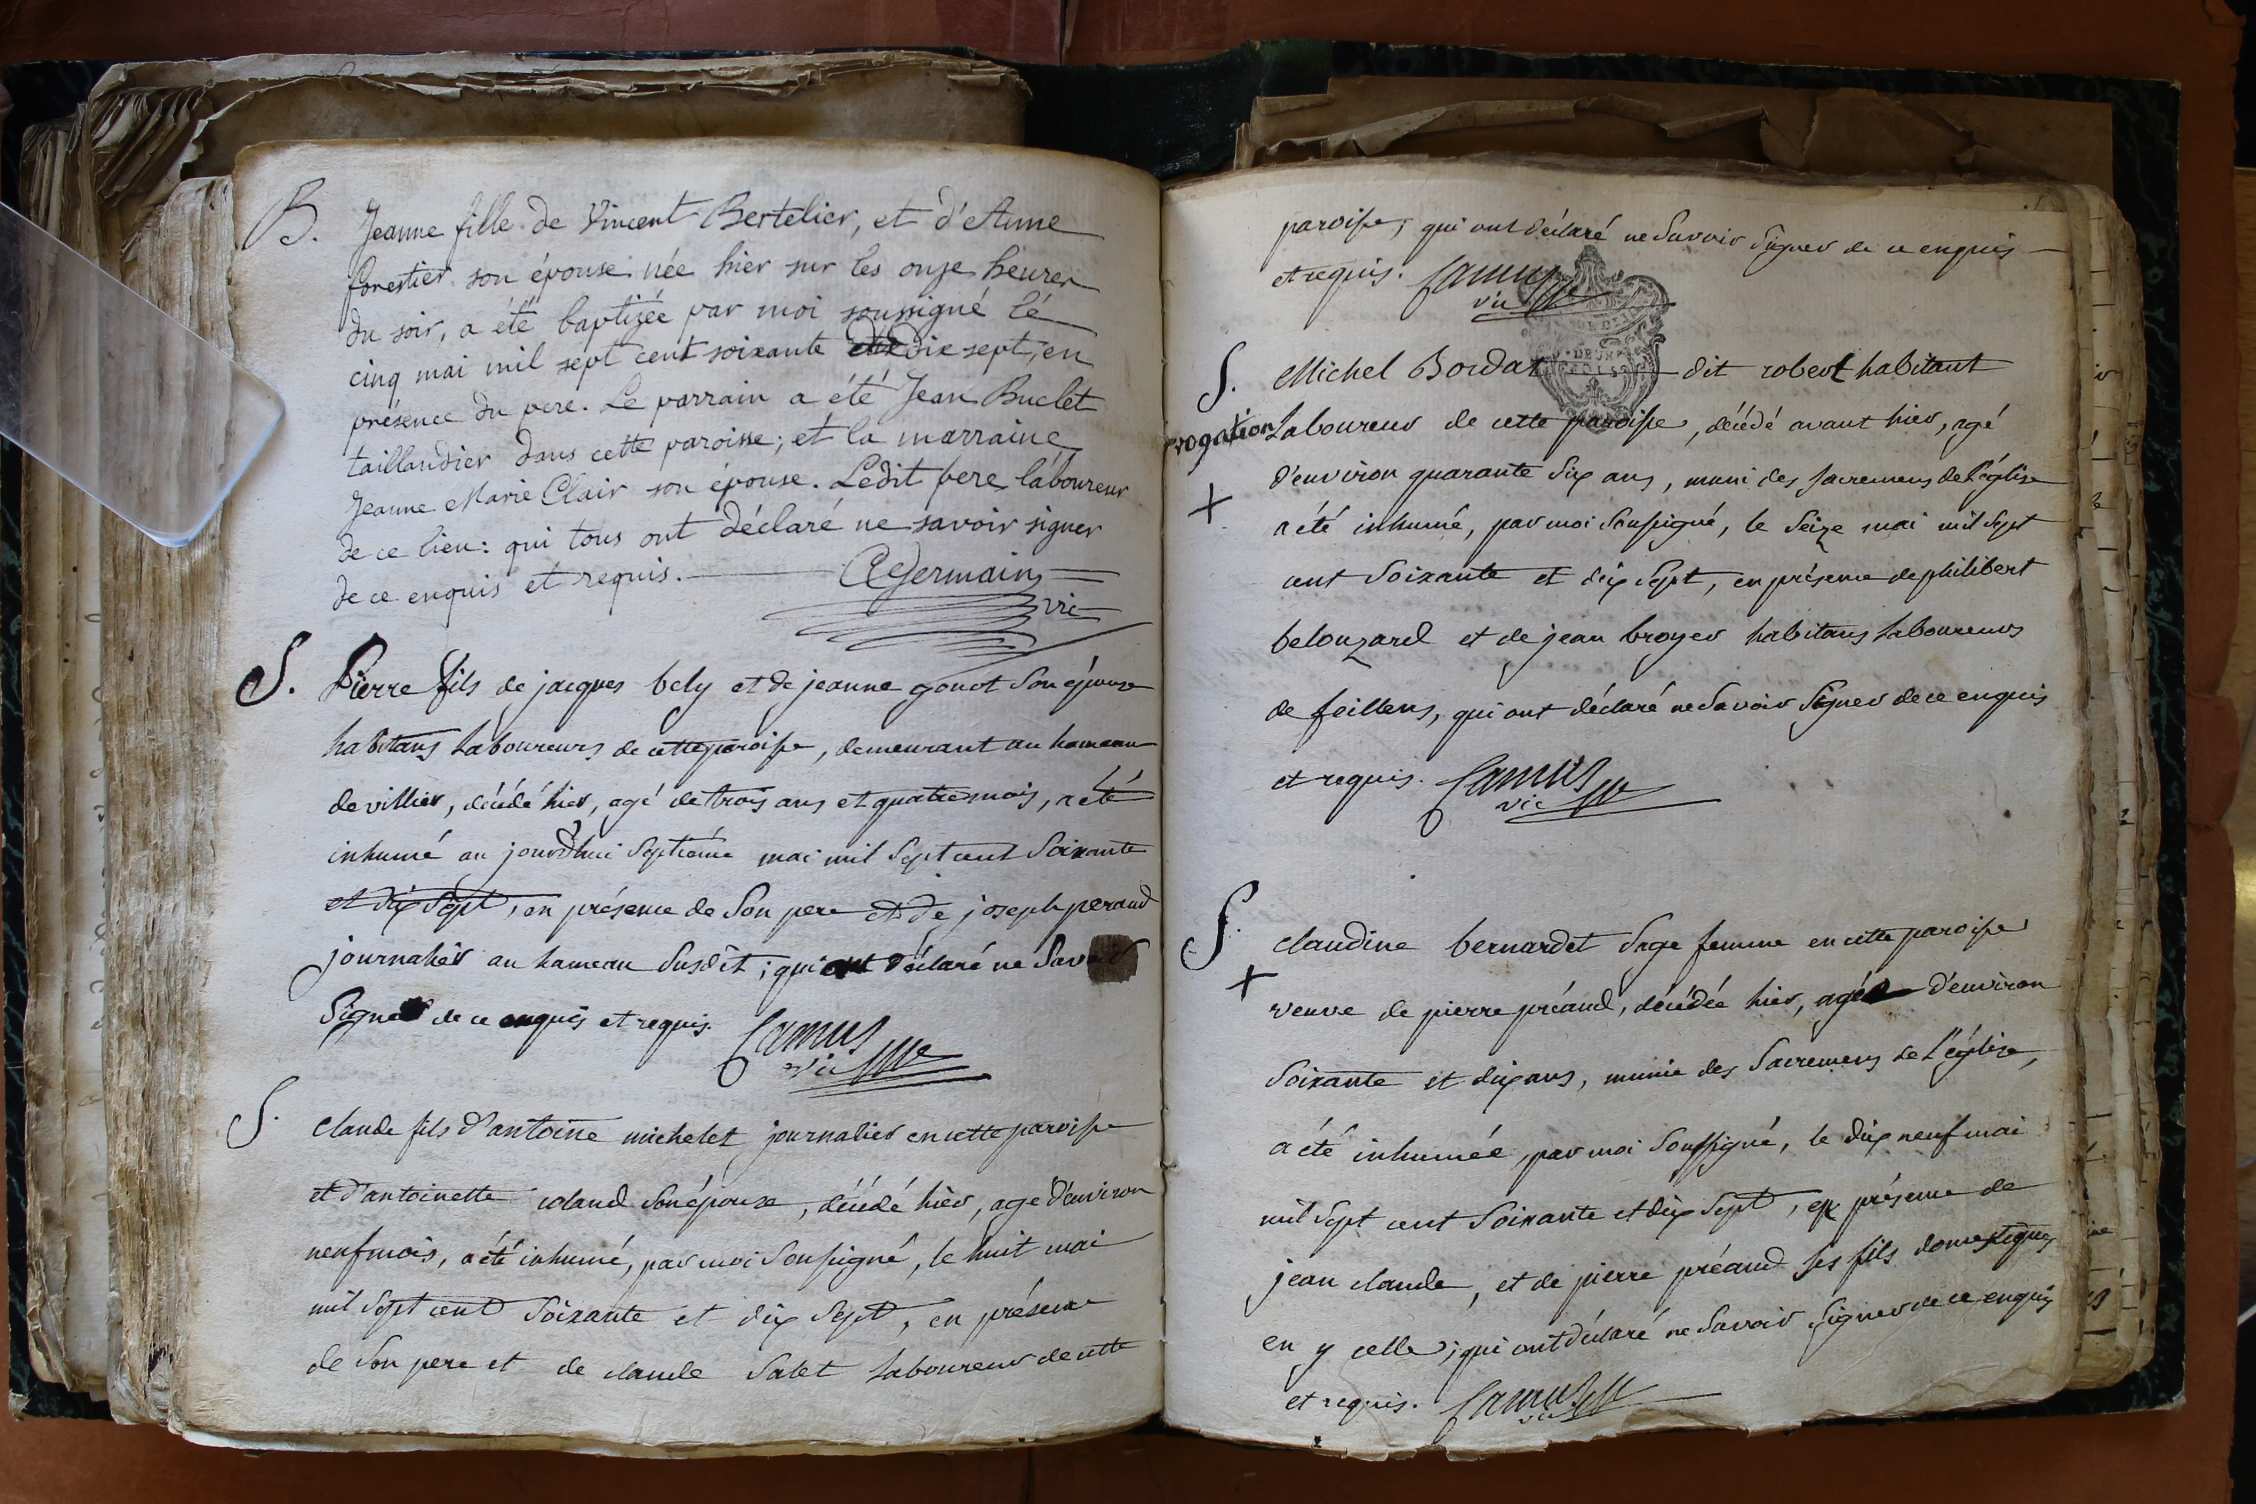 B. Jeanne fille de Vincent Bertelier, et d'Anne
forestier son épouse née hier sur les onze heures
du soir, a été baptizée par moi soussigné le
cinq mai mil sept cent soixante dix sept, en
présence du pere. Le parrain a été Jean Buclet
taillandier dans cette paroisse; et la marraine
Jeanne Marie Clair son épouse. Ledit pere laboureur
de ce lieu: qui tous ont déclaré ne savoir signer
de ce enquis et requis. Germain
vic
S. Pierre fils de jacques bely et de jeanne gonot son épouse
habitans laboureurs de cette paroisse, demeurant au hameau
de villier, décédé hier, agé de trois ans et quatre mois, a été
inhumé au jourd'hui septiéme mai mil sept cent soixante
et dix sept, en présence de son pere et de joseph peraud
journalier au hameau susdit; qui ont déclaré ne savoir
signer de ce enquis et requis. Camus
vic
S. claude fils d'antoine michelet journalier en cette paroisse
et d'antoinette roland son épouse, décédé hier, agé d'environ
neuf mois, a été inhumé, par moi soussigné, le huit mai
mil sept cent soixante et dix sept, en présence
de son pere et de claude salet laboureur de cette
paroisse; qui ont déclaré ne savoir signer de ce enquis
et requis. Camus
vic
S. Michel Bordat dit robert habitant
rogation laboureur de cette paroisse, décédé avant hier, agé
d'environ quarante six ans, muni des sacremens de l'église
+ a été inhumé, par moi soussigné, le seize mai mil sept
cent soixante et dix sept, en présence de philibert
belouzard et de jean broyer habitans laboureurs
de feillens, qui ont déclaré ne savoir signer de ce enquis
et requis. Camus
vic
S. claudine bernardet sage femme en cette paroisse
+ veuve de pierre préaud, décédée hier, agée d'environ
soixante et dix ans, munie des sacremens de l'église,
a été inhumée, par moi soussigné, le dix neuf mai
mil sept cent soixante et dix sept, en présence de
jean claude, et de pierre préaud ses fils domestiques
en y celle; qui ont déclaré ne savoir signer de ce enquis
et requis. Camus
vic